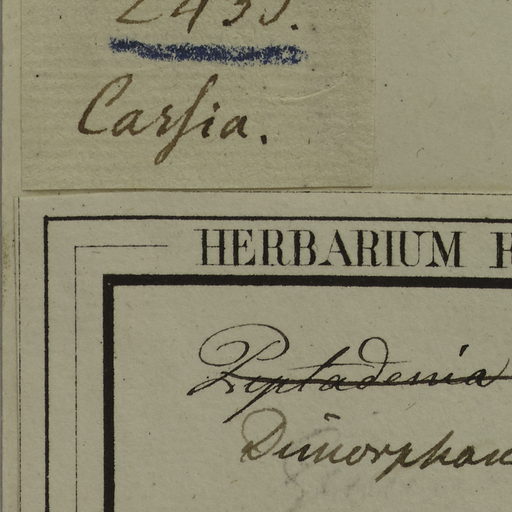 2435.
Cassia.
HERBARIUM
Piptadenia
Dimorphan